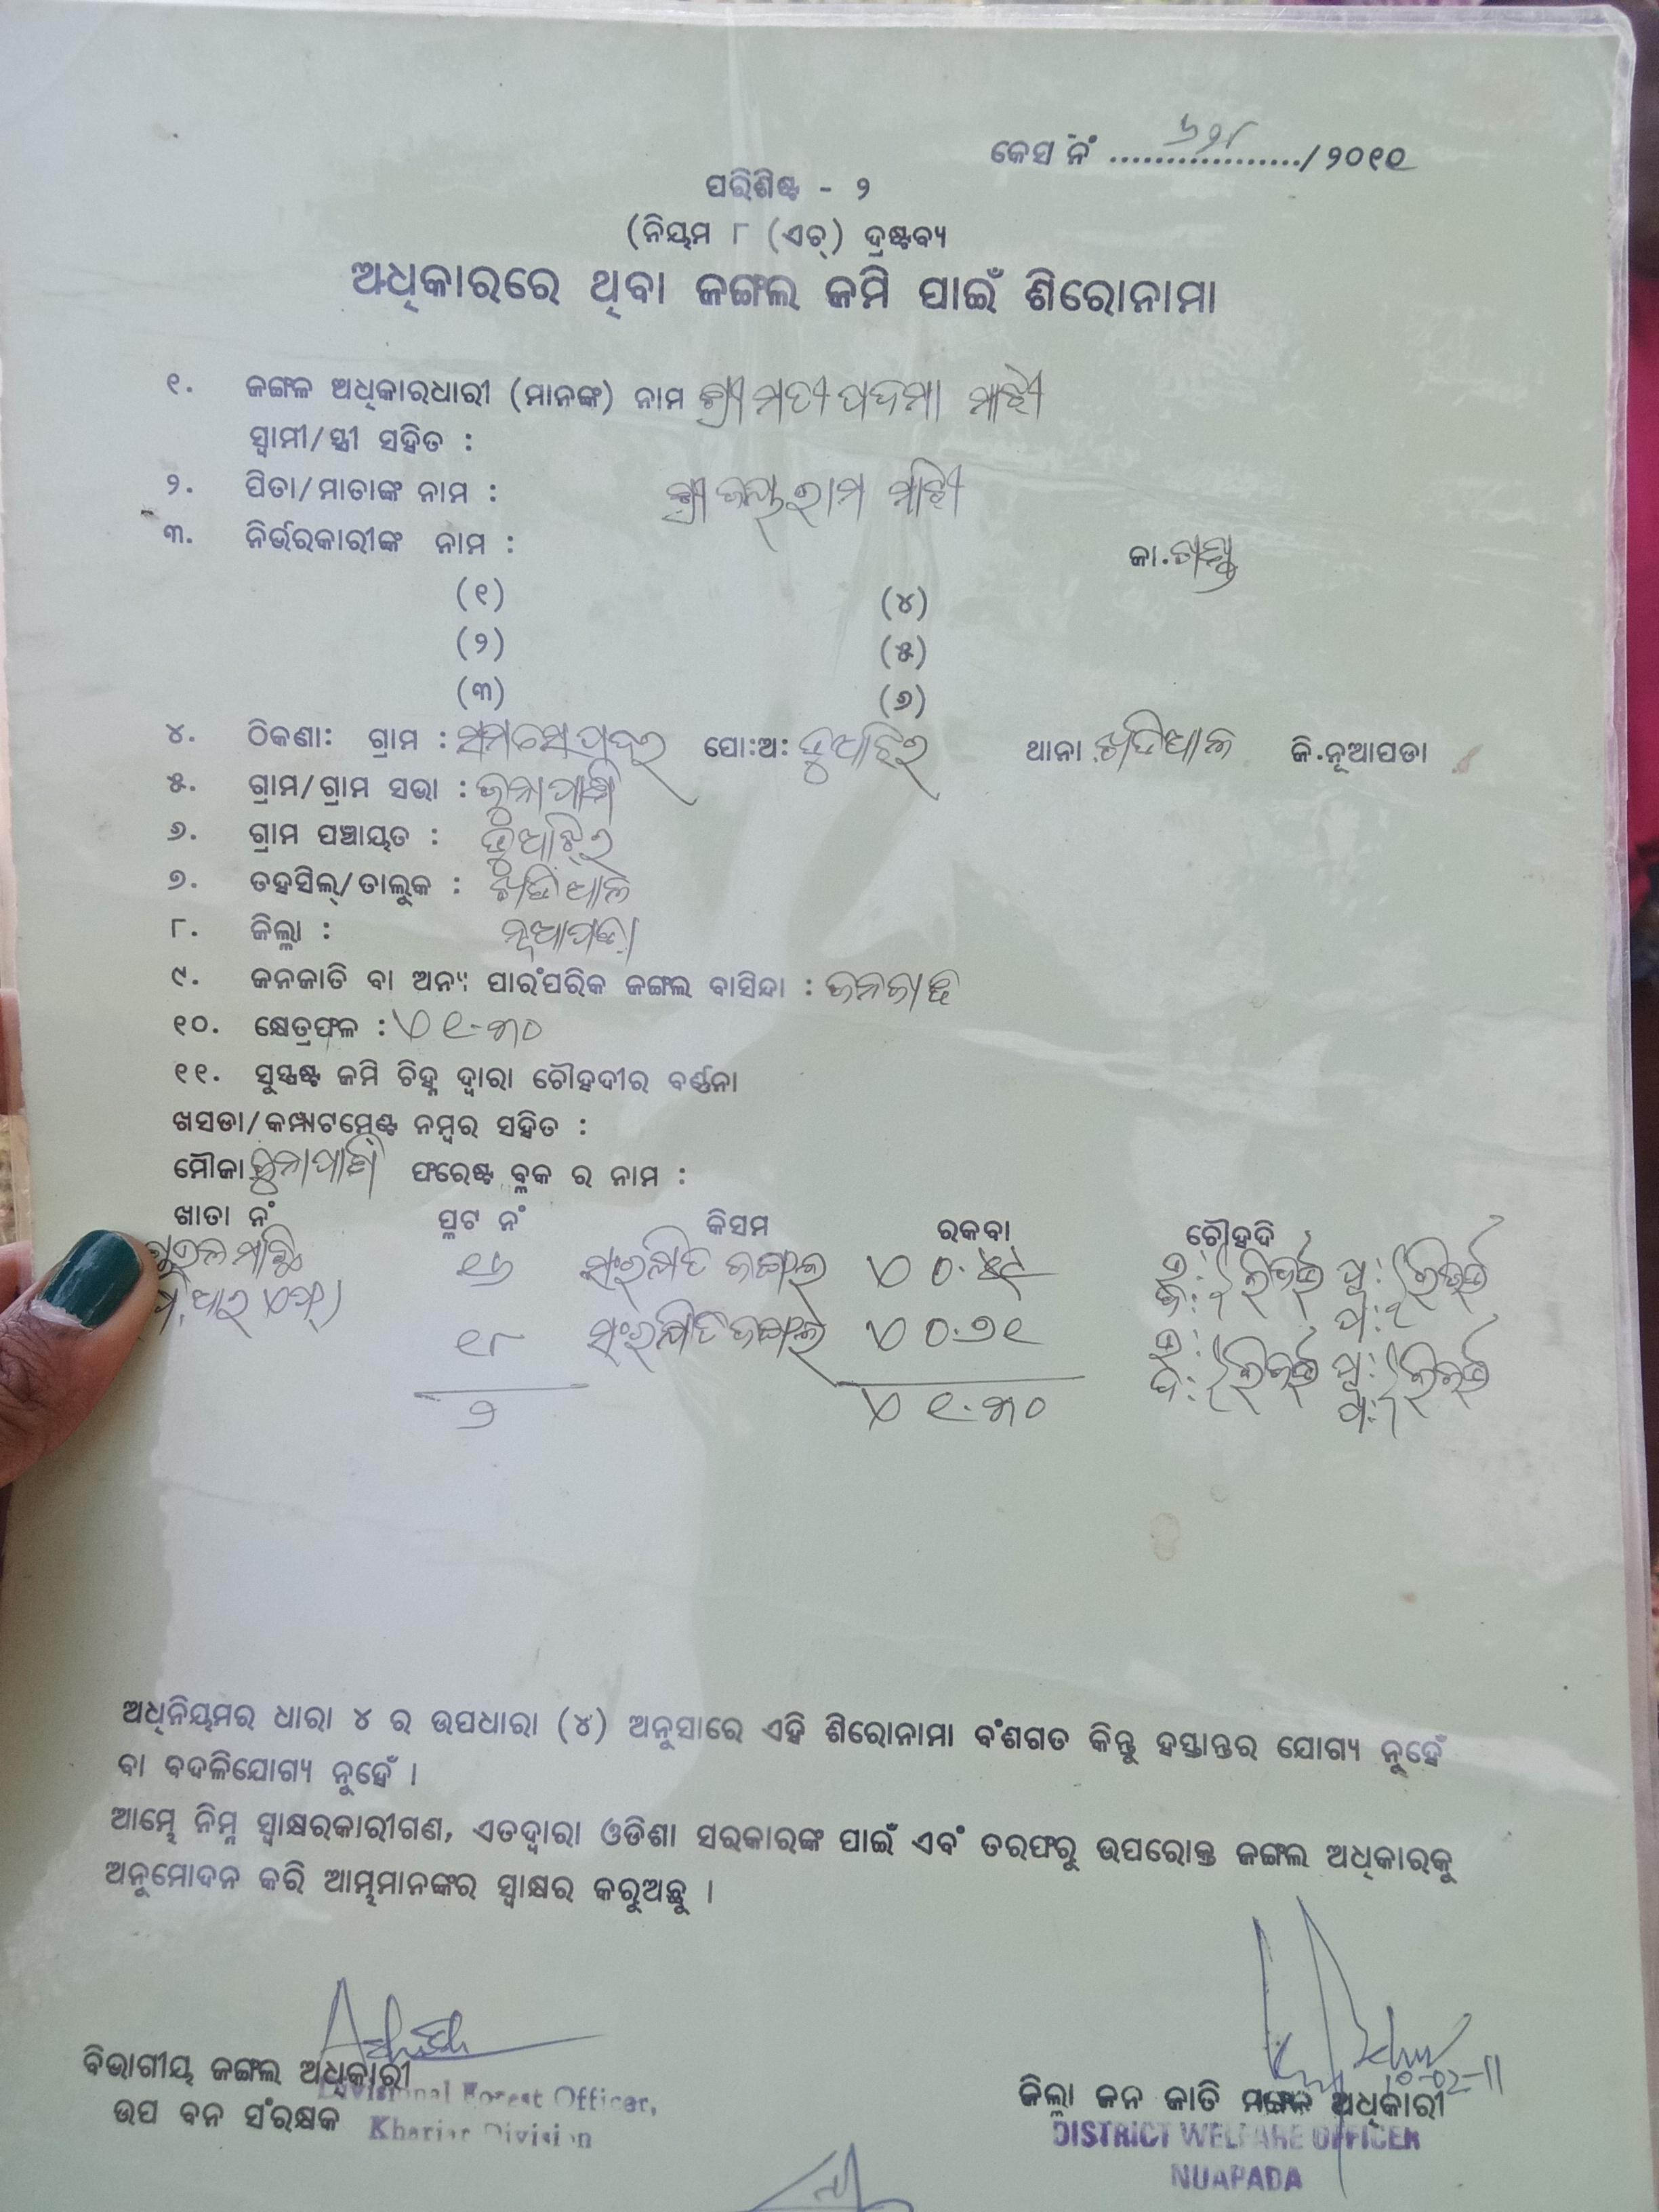 କେସ ନଂ ................../୨୦୧୧ ୬୨୮
ପରିଶିଷ୍ଟ - ୨
(ନିୟମ ୮ (ଏଚ୍) ଦ୍ରଷ୍ଟବ୍ୟ
ଅଧିକାରରେ ଥିବା ଜଙ୍ଗଲ ଜମି ପାଇଁ ଶିରୋନାମା
୧. ଜଙ୍ଗଲ ଅଧିକାରଧାରୀ (ମାନଙ୍କ) ନାମ ଶ୍ରୀମତୀ ପଦମା ମାଝୀ
ସ୍ୱାମୀ/ସ୍ତ୍ରୀ ସହିତ :
୨. ପିତା/ମାତାଙ୍କ ନାମ : ଶ୍ରୀ ଜୟରାମ ମାଝୀ
୩. ନିର୍ଭରକାରୀଙ୍କ ନାମ : ଜା.
(୧) (୪)
(୨) (୫)
(୩) (୬)
୪. ଠିକଣା: ଗ୍ରାମ : ପୋ:ଅ: ଥାନା ଖଡିଆଳ ଜି.ନୂଆପଡା
୫. ଗ୍ରାମ/ଗ୍ରାମ ସଭା :
୬. ଗ୍ରାମ ପଞ୍ଚାୟତ :
୭. ତହସିଲ୍/ତାଲୁକ : ଖଡିଆଳ
୮. ଜିଲ୍ଲା : ନୂଆପଡା
୯. ଜନଜାତି ବା ଅନ୍ୟ ପାରଂପରିକ ଜଙ୍ଗଲ ବାସିନ୍ଦା : ଜନଜାତି
୧୦. କ୍ଷେତ୍ରଫଳ : ଏ ୧.୩୦
୧୧. ସୁସ୍ପଷ୍ଟ ଜମି ଚିହ୍ନ ଦ୍ୱାରା ଚୌହଦୀର ବର୍ଣ୍ଣନା
ଖସଡା/କମ୍ପାଟମେଣ୍ଟ ନମ୍ବର ସହିତ :
ମୌଜା ଫରେଷ୍ଟ ବ୍ଲକ ର ନାମ :
ଖାତା ନଂ ପ୍ଲଟ ନଂ କିସମ ରକବା ଚୌହଦି
୧୬ ସଂରକ୍ଷିତ ଜଙ୍ଗଲ ଏ ୦.୫୯
୧୮ ସଂରକ୍ଷିତ ଜଙ୍ଗଲ ଏ ୦.୭୧
୨ ଏ ୧.୩୦
ଅଧିନିୟମର ଧାରା ୪ ର ଉପଧାରା (୪) ଅନୁସାରେ ଏହି ଶିରୋନାମା ବଂଶଗତ କିନ୍ତୁ ହସ୍ତାନ୍ତର ଯୋଗ୍ୟ ନୁହେଁ
ବା ବଦଳିଯୋଗ୍ୟ ନୁହେଁ ।
ଆମ୍ଭେ ନିମ୍ନ ସ୍ୱାକ୍ଷରକାରୀଗଣ, ଏତଦ୍ୱାରା ଓଡିଶା ସରକାରଙ୍କ ପାଇଁ ଏବଂ ତରଫରୁ ଉପରୋକ୍ତ ଜଙ୍ଗଲ ଅଧିକାରକୁ
ଅନୁମୋଦନ କରି ଆମ୍ଭମାନଙ୍କର ସ୍ୱାକ୍ଷର କରୁଅଛୁ ।
10-02-11
ବିଭାଗୀୟ ଜଙ୍ଗଲ ଅଧିକାରୀ
Divisional Forest Officer,
ଉପ ବନ ସଂରକ୍ଷକ
Khariar Division
ଜିଲ୍ଲା ଜନ ଜାତି ମଙ୍ଗଳ ଅଧିକାରୀ
DISTRICT WELFARE OFFICER
NUAPADA